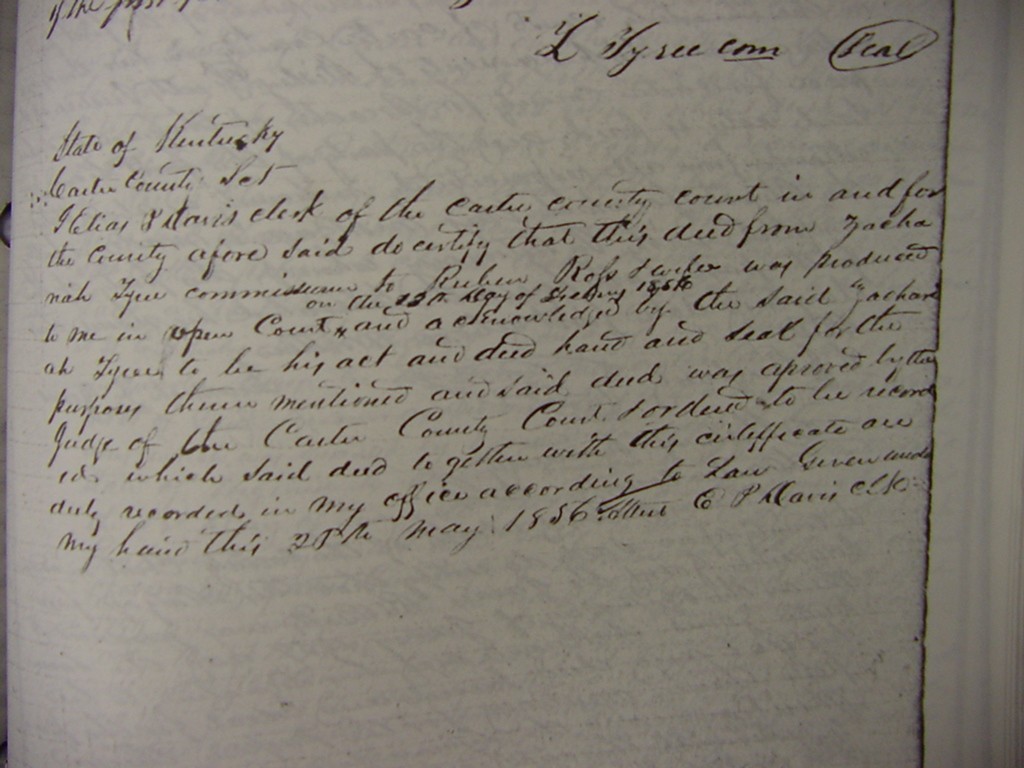 of the
Z Tyree com (Seal)
State of Kentucky
Carter County Sct
I Elias P Davis clerk of the Carter county court in and for
the County afore said do certify that this deed from Zacha
riah Tyree commissioner to Reuben Ross & wife was produced
on the day of 1856
to me in open Court and acknowledged by the said Zachari
ah Tyree to be his act and deed hand and seal for the
purposes therein mentioned and said deed was aproved by the
Judge of the Carter County Court & ordered to be record
ed which said deed to gether with this certifficate are
duly recorded in my office according to Law Given under
my hand this 28th May 1856 Attest E P Davis Clk